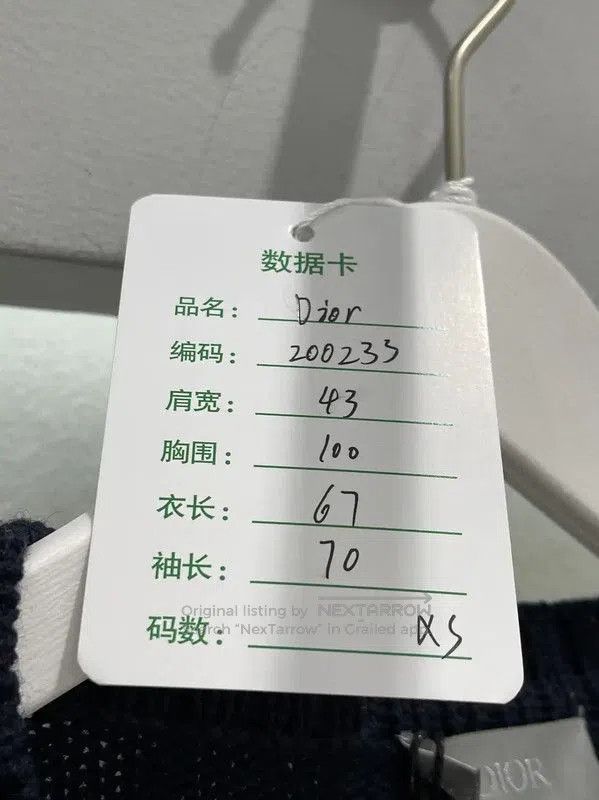 数据卡
品名： Dior
编码： 200233
肩宽： 43
胸围： 100
衣长： 67
袖长： 70
Original listing by NEXTARROW
"NexTarrow" in Grailed app
码数： XS
DIOR